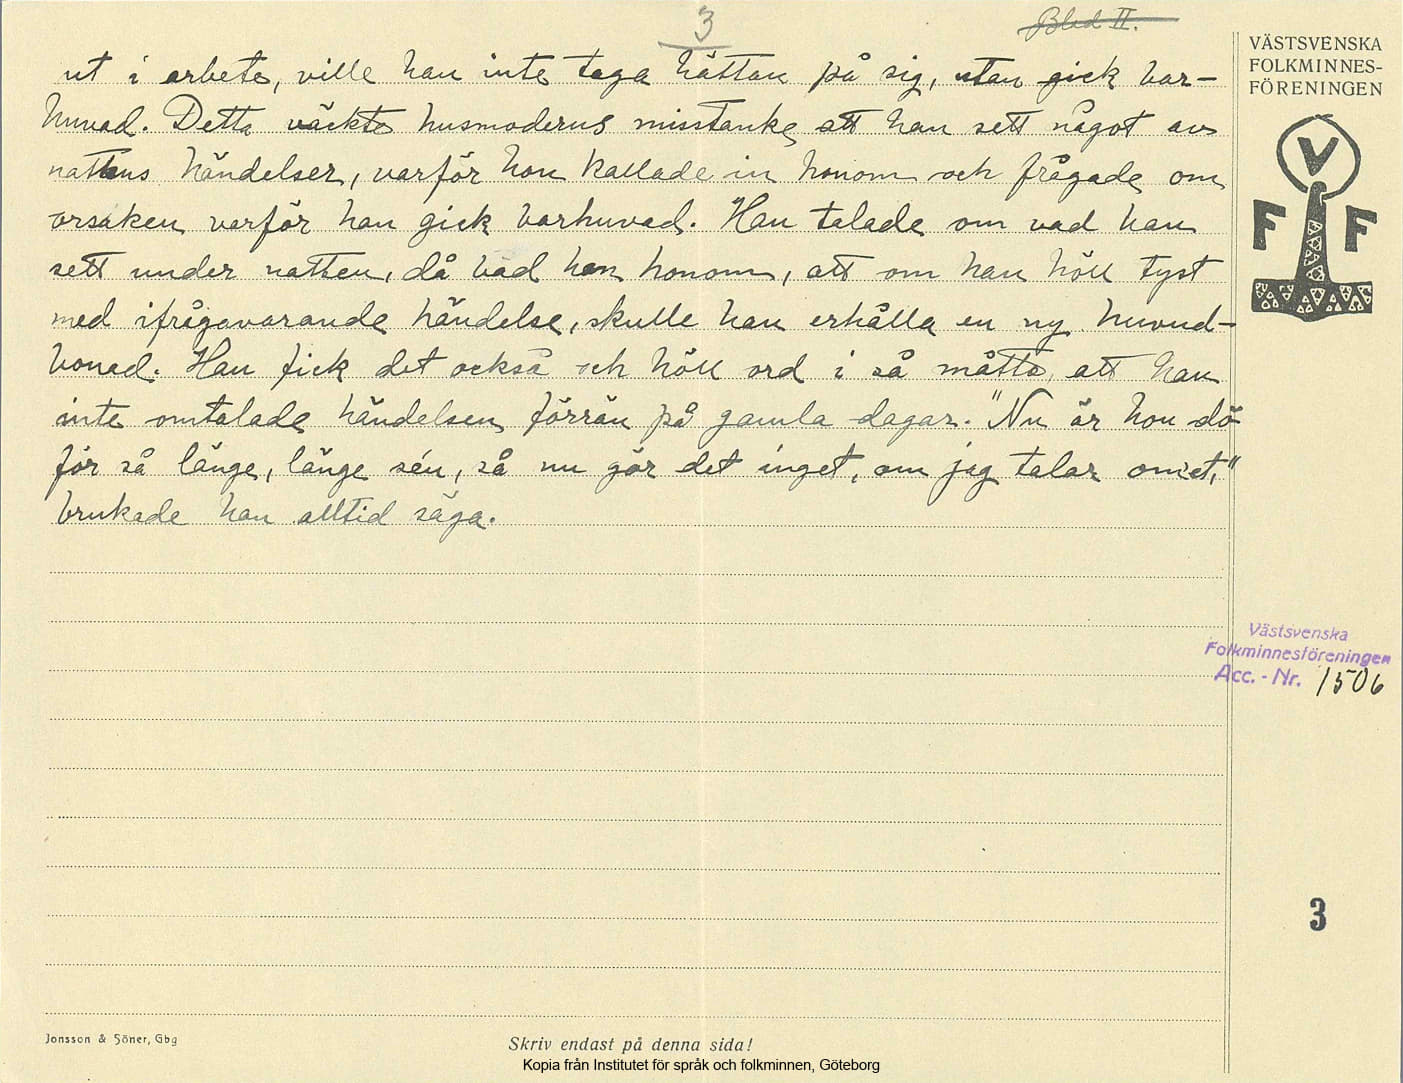 3
Blad II.
ut i arbete, ville han inte taga hättan på sig, utan gick bar-
huvad. Detta väckte husmoderns misstanke att han sett något av
nattens händelser, varför hon kallade in honom och frågade om
orsaken varför han gick barhuvad. Han talade om vad han
sett under natten, då bad hon honom, att om han höll tyst
med ifrågavarande händelse, skulle han erhålla en ny huvud-
bonad. Han fick det också och höll ord i så måtto, att han
inte omtalade händelsen förrän på gamla dagar. "Nu är hon dö
för så länge, länge sén, så nu gör det inget, om jag talar om et,"
brukade han alltid säga.
VÄSTSVENSKA
FOLKMINNES-
FÖRENINGEN
V
F F
Västsvenska
Folkminnesföreningen
Acc.-Nr. 1506
3
Jonsson & Söner, Gbg
Skriv endast på denna sida!
Kopia från Institutet för språk och folkminnen, Göteborg